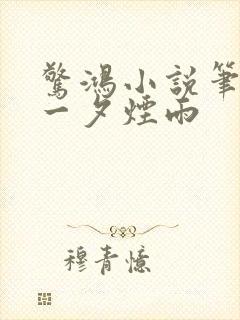 驚鴻小說筆
一夕煙雨
穆青憶